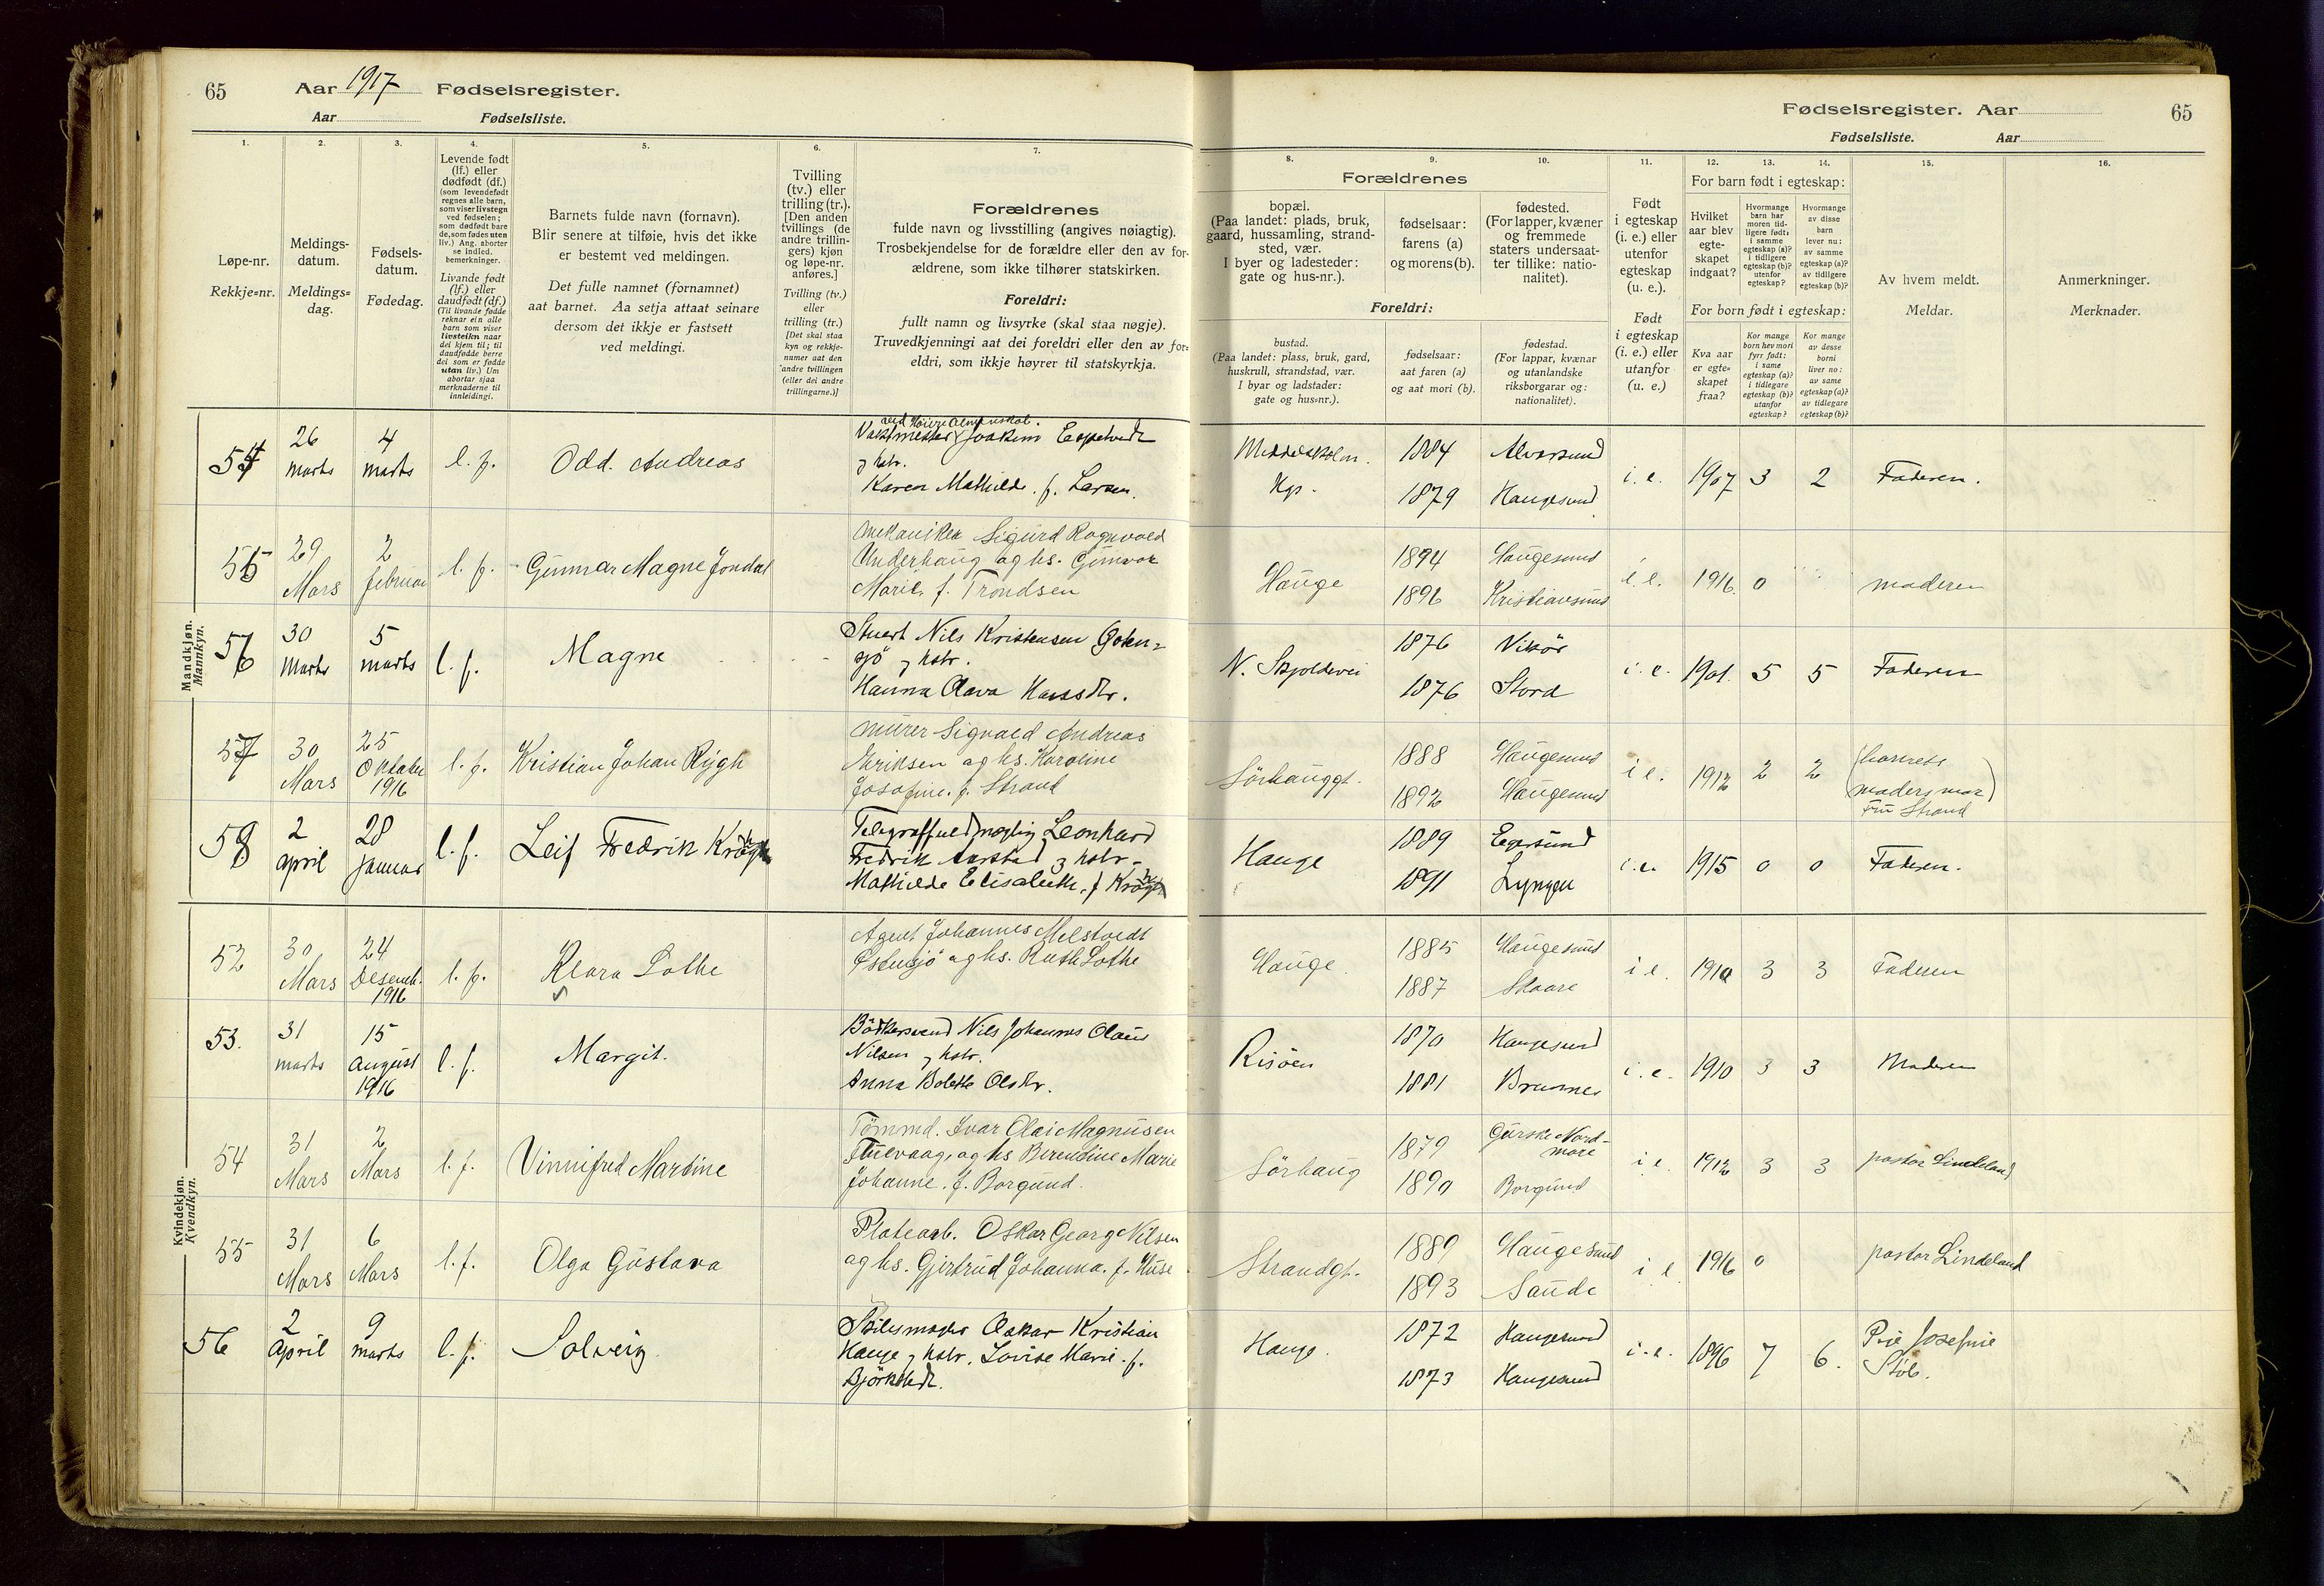 65 Aar 1917 Fødselsregister.
Aar Fødselsliste.
Fødselsregister. Aar 65
Fødselsliste. Aar
1. 2. 3. 4. 5. 6. 7. 8. 9. 10. 11. 12. 13. 14. 15. 16.
Løpe-nr.
Rekkje=nr.
Meldings-
datum.
Meldings=
dag.
Fødsels-
datum.
Fødedag.
Levende født
(lf.) eller
dødfødt (df.)
(som levendefødt
regnes alle barn,
som viser livstegn
ved fødselen;
som dødfødt bare
de, som fødes uten
liv.) Ang. aborter
se indled.
bemerkninger.
Livande født
(lf.) eller
daudfødt (df.)
(Til livande fødde
reknar ein alle
barn som viser
livsteikn naar
dei kjem til; til
daudfødde berre
dei som er fødde
utan liv.) Um
abortar sjaa
merknaderne til
innleidingi.
Barnets fulde navn (fornavn).
Blir senere at tilføie, hvis det ikke
er bestemt ved meldingen.
Det fulle namnet (fornamnet)
aat barnet. Aa setja attaat seinare
dersom det ikkje er fastsett
ved meldingi.
Tvilling
(tv.) eller
trilling (tr.).
[Den anden
tvillings (de
andre trillin-
gers) kjøn
og løpe-nr.
anføres.]
Tvilling (tv.)
eller
trilling (tr.)
[Det skal staa
kyn og rekkje-
numer aat den
andre tvillingen
(eller dei andre
trillingarne.)]
Forældrenes
fulde navn og livsstilling (angives nøiagtig).
Trosbekjendelse for de forældre eller den av for-
ældrene, som ikke tilhører statskirken.
Foreldri:
fullt namn og livsyrke (skal staa nøgje).
Truvedkjenningi aat dei foreldri eller den av for=
eldri, som ikkje høyrer til statskyrkja.
Forældrenes
bopæl.
(Paa landet: plads, bruk,
gaard, hussamling, strand-
sted, vær.
I byer og ladesteder:
gate og hus-nr.).
fødselsaar:
farens (a)
og morens (b).
fødested.
(For lapper, kvæner
og fremmede
staters undersaat-
ter tillike: natio-
nalitet).
Foreldri:
bustad.
(Paa landet: plass, bruk, gard,
huskrull, strandstad, vær.
I byar og ladstader:
gate og hus=nr.).
fødselsaar:
aat faren (a)
og aat mori (b).
fødestad.
(For lappar, kvænar
og utanlandske
riksborgarar og:
nationalitet).
Født
i egteskap
(i. e.) eller
utenfor
egteskap
(u. e.).
Født
i egteskap
(i. e.) eller
utanfor
(u. e.)
For barn født i egteskap:
Hvilket
aar blev
egte-
skapet
indgaat?
Hvormange
barn har
moren tid-
ligere født:
i samme
egteskap (a)?
i tidligere
egteskap (b)?
utenfor
egteskap?
Hvormange
av disse
barn
lever nu:
av samme
egteskap (a)?
av tidligere
egteskap (b)?
For born født i egteskap:
Kva aar
er egte=
skapet
fraa?
Kor mange
born hev mori
fyrr født:
i same
egteskap (a)?
i tidlegare
egteskap (b)?
utanfor
egteskap?
Kor mange
av desse
borni
liver no:
av same
egteskap (a)?
av tidlegare
egteskap (b)?
Av hvem meldt.
Meldar.
Anmerkninger.
Merknader.
Mandkjøn.
Mannkyn.
54 26 marts 4 marts l. f. Odd. Andreas
Vaktmester Joakim Espetvedt
og hstr.
Karen Mathilde. f. Larsen.
Middelskolen. 1884 Alversund
1879 Haugesund
i. e. 1907 3 2 Faderen.
55 29 Mars 2 februar l. f. Gunnar Magne Jondal
mekaniker Sigurd Ragnvald
Underhaug og hs. Gunvor
Marie, f. Trondsen
Hauge 1894 Haugesund
1896 Kristiansund
i. e. 1916. 0 moderen
56 30 Marts 5 marts l. f. Magne
Stuert Nils Kristensen
og hstr.
Hanna Olava Hansdtr.
N. Skjoldevei 1876 Vikör
1876 Stord
i. e. 1901. 5 5 Faderen
57 30 Mars 25 Oktober 1916 l. f. Kristian Johan Rygh
murer Sigvald Andreas
Eriksen og hs. Karoline
Josefine. f. Strand
Sörhauggt. 1888 Haugesund
1892 Haugesund
i e. 1912 2 2 (barnets
moders mor)
Fru Strand
58 2 april 28 januar l. f. Leif Fredrik Krogh
Leonhard
Fredrik Aarstad og hstr.
Mathilde Elisabeth. f Krogh
Hauge 1889 Egersund
1891 Lyngen
i. e. 1915 0 0 Faderen.
Kvindekjøn.
Kvendkyn.
52 30 Mars 24 Desemb. 1916 l. f. Klara Lothe
Agent Johannes Melstvedt
Östensjö og hs. Ruth Lothe
Hauge. 1885 Haugesund
1887 Skaare
i e. 1910 3 3 Faderen
53. 31 marts 15 August 1916 l. f. Margit.
Bödkersvend Nils Johannes Olaus
Nilsen og hstr.
Anna Bolette Olsdtr.
Risöen 1870 Haugesund
1881 Bremnes
i. e. 1910 3 3 Moderen
54 31 Mars 2 Mars l. f. Vinnifred Martine
Tömmd. Ivar Olai Magnusen
og hs Berendine Marie
Johanne. f. Borgund.
Sörhaug 1879 Gurske Nord-
möre
1890 Borgund
i e. 1912 3 3 pastor Lindeland
55 31 Mars 6 Mars l. f. Olga Gustava
Platearb. Oskar Georg Nilsen
og hs. Gjertrud Johanna. f. Huse
Strandgt. 1889 Haugesund
1893 Saude
i e. 1916 0 pastor Lindeland
56 2 April 9 marts l. f. Solveig
Oskar Kristian
Hauge og hstr. Lovise Marie. f.
Björkstedt.
Hauge. 1872 Haugesund
1873 Haugesund
i. e. 1896 7 6. Josefine